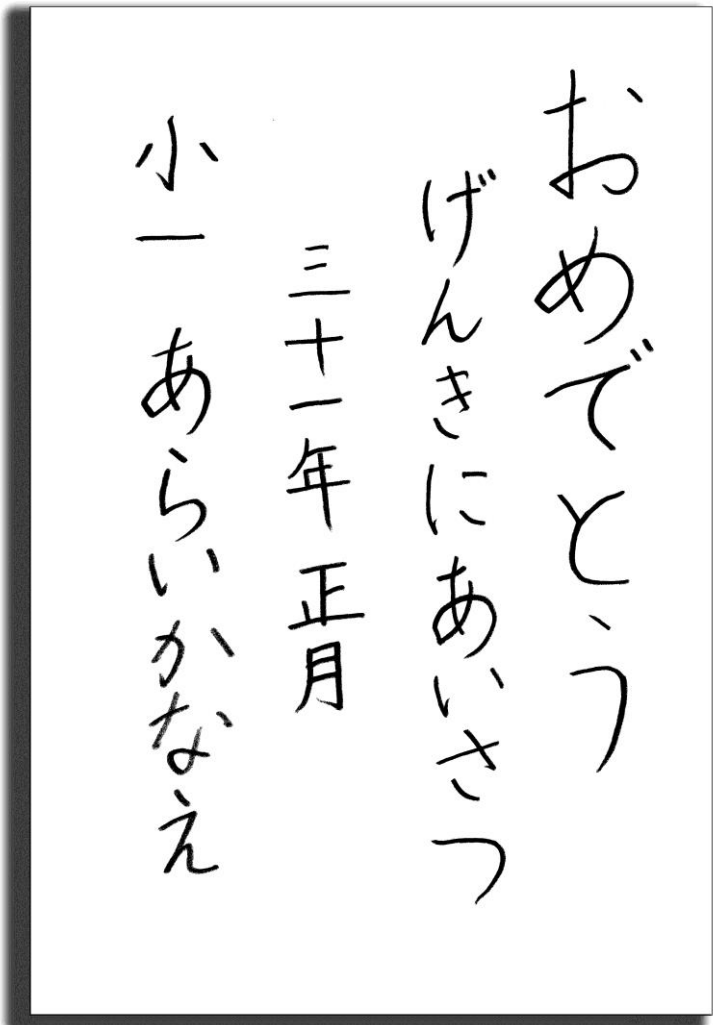 おめでとう
げんきにあいさつ
三十一年 正月
小一 あらいかなえ